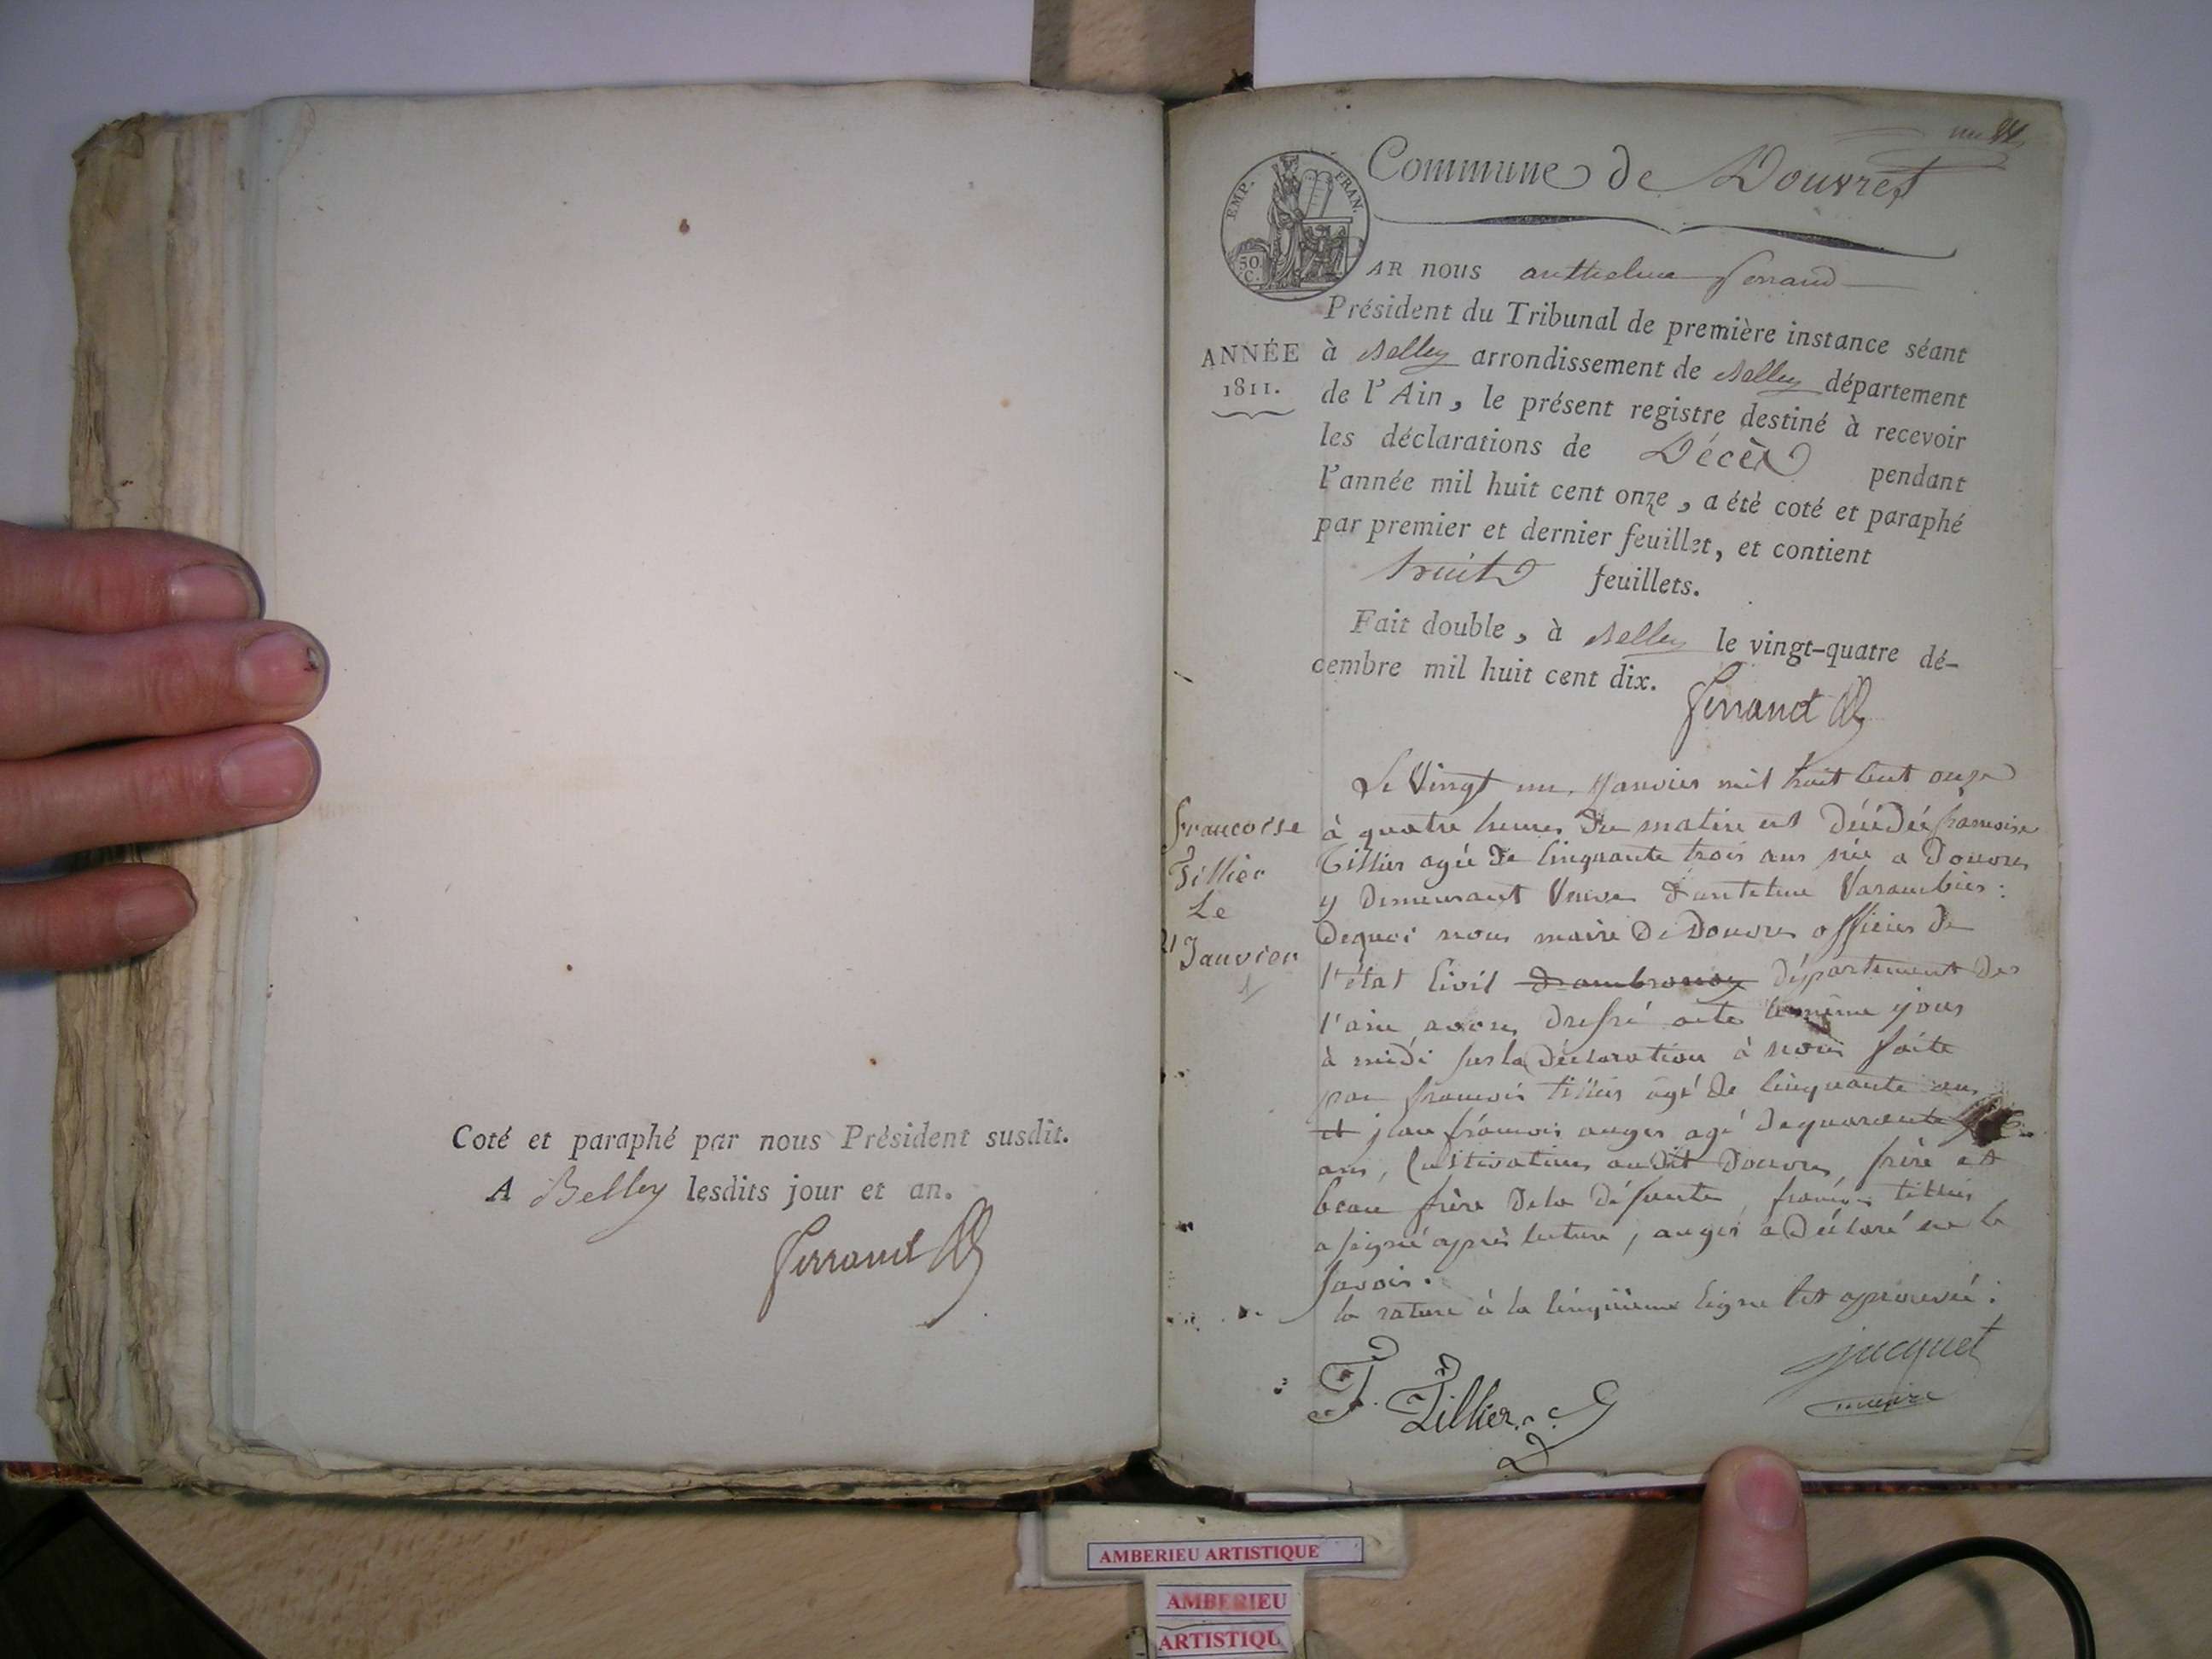 Coté et paraphé par nous Président susdit.
A Belley lesdits jour et an.
Ferrand
Commune de Douvres
EMP. FRAN.
50 C.
AR nous anthelme ferrand
Président du Tribunal de première instance séant
ANNÉE
1811.
à Belley arrondissement de Belley département
de l'Ain, le présent registre destiné à recevoir
les déclarations de Décès pendant
l'année mil huit cent onze, a été coté et paraphé
par premier et dernier feuillet, et contient
huit feuillets.
Fait double, à Belley le vingt-quatre dé-
cembre mil huit cent dix.
Ferrand
francoise
Tillier
Le
21 Janvier
Le Vingt un Janvier mil huit Cent onze
à quatre heures Du matin est Décédée francoise
Tillier agée De Cinquante trois ans née a Douvres
y Demeurant Veuve D'antelme Varambier :
Dequoi nous maire De Douvres officier De
l'état Civil D'ambronay Département De
l'ain avons Dressé acte le même jour
à midi sur la Déclaration à nous faite
par francois tillier agé De Cinquante ans
et jean francois auger agé De quarante
ans, Cultivateurs audit Douvres, frère et
beau frère De la Défunte, francois tillier
a signé après lecture, auger a Déclaré ne le
savoir.
la rature à la Cinquième ligne est aprouvée :
jacquet
maire
F. Tillier
AMBERIEU ARTISTIQUE
AMBERIEU
ARTISTIQU